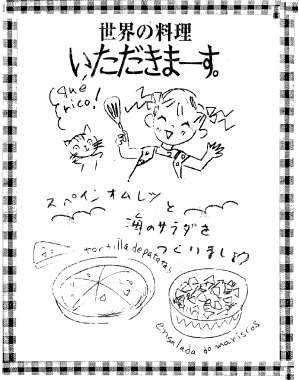 世界の料理
いただきまーす。
Que
rico!
スペインオムレツ
と
海のサラダを
つくりましょう
tortilla de patatas
ensalada de mariscos